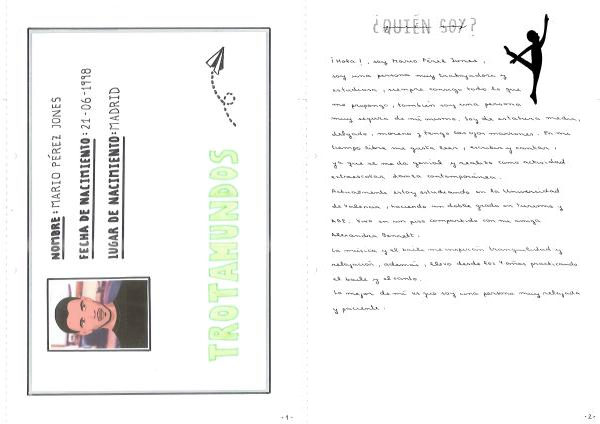 NOMBRE: MARIO PÉREZ JONES
FECHA DE NACIMIENTO: 21-06-1998
LUGAR DE NACIMIENTO: MADRID
TROTAMUNDOS
-1-
¿QUIÉN SOY?
¡Hola!, soy Mario Pérez Jones,
soy una persona muy trabajadora y
estudiosa, siempre consigo todo lo que
me propongo, también soy una persona
muy segura de mi misma. Soy de estatura media,
delgado, moreno y tengo los ojos marrones. En mi
tiempo libre me gusta leer, escribir y cantar,
ya que se me da genial y realizo como actividad
extraescolar danza contemporánea.
Actualmente estoy estudiando en la Universidad
de Valencia, haciendo un doble grado en Turismo y
ADE. Vivo en un piso compartido con mi amiga
Alexandra Bennett.
La música y el baile me inspiran tranquilidad y
relajación, además, llevo desde los 4 años practicando
el baile y el canto.
Lo mejor de mí es que soy una persona muy relajada
y paciente.
-2-